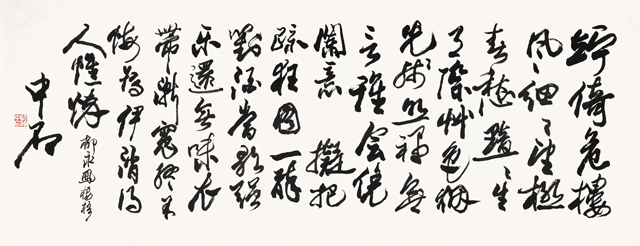 竚倚危樓
風細細望極
春愁黯黯生
天際艸色烟
光殘照裡無
言誰會凭
闌意 擬把
疏狂圖一醉
對酒當歌強
樂還無味衣
帶漸寬終不
悔為伊消得
人憔悴 柳永鳳棲梧
中石